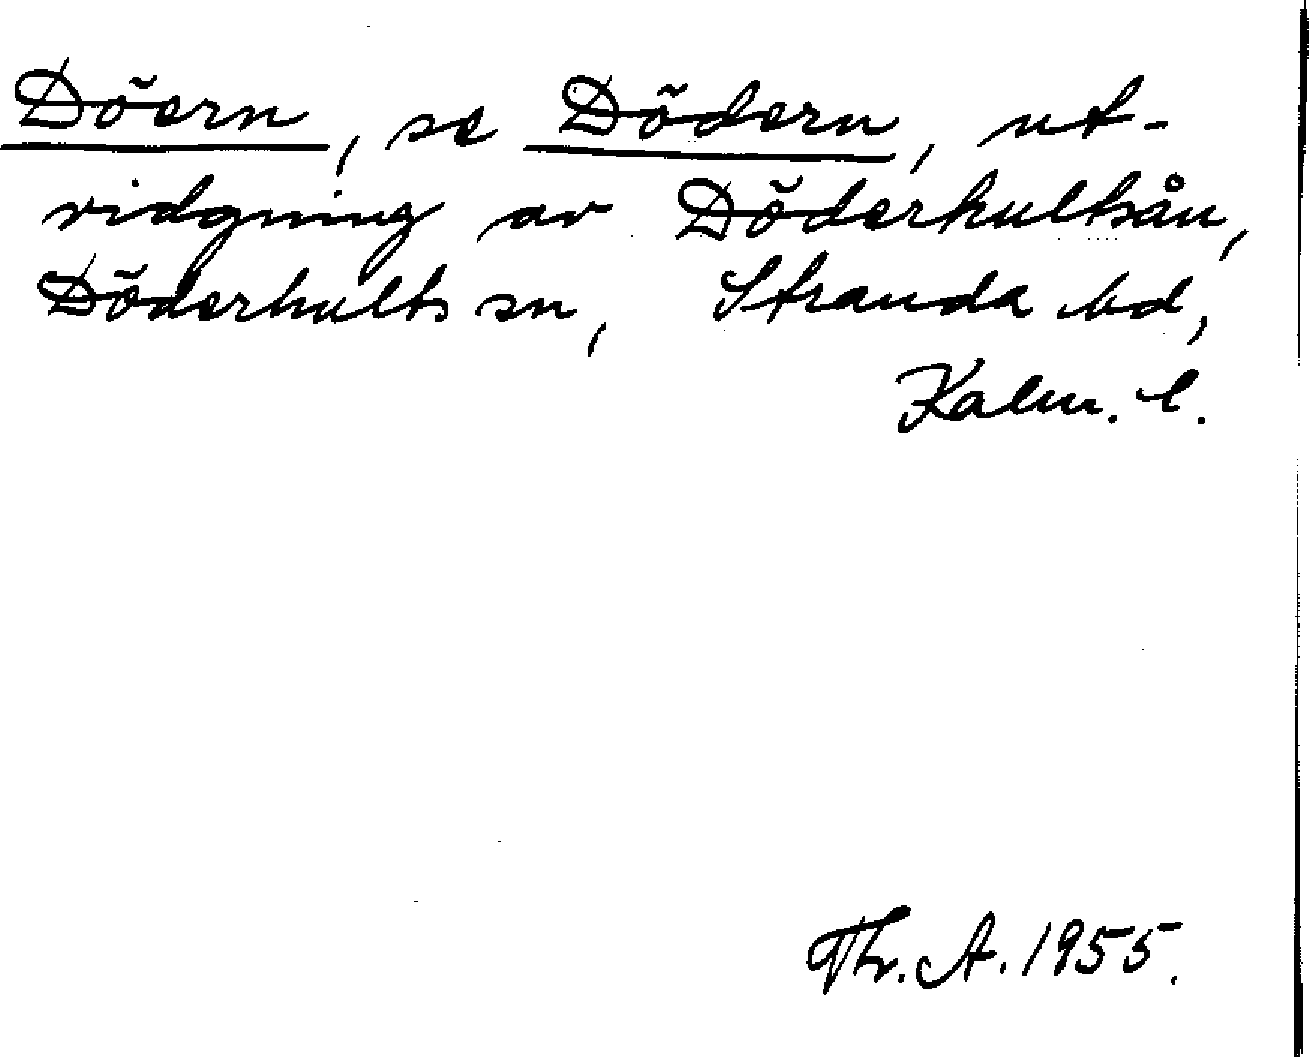 Döern, se Dödern, ut-
vidgning av Döderhultsån,
Döderhults sn, Stranda hd,
Kalm. l.
Thr. A. 1955.